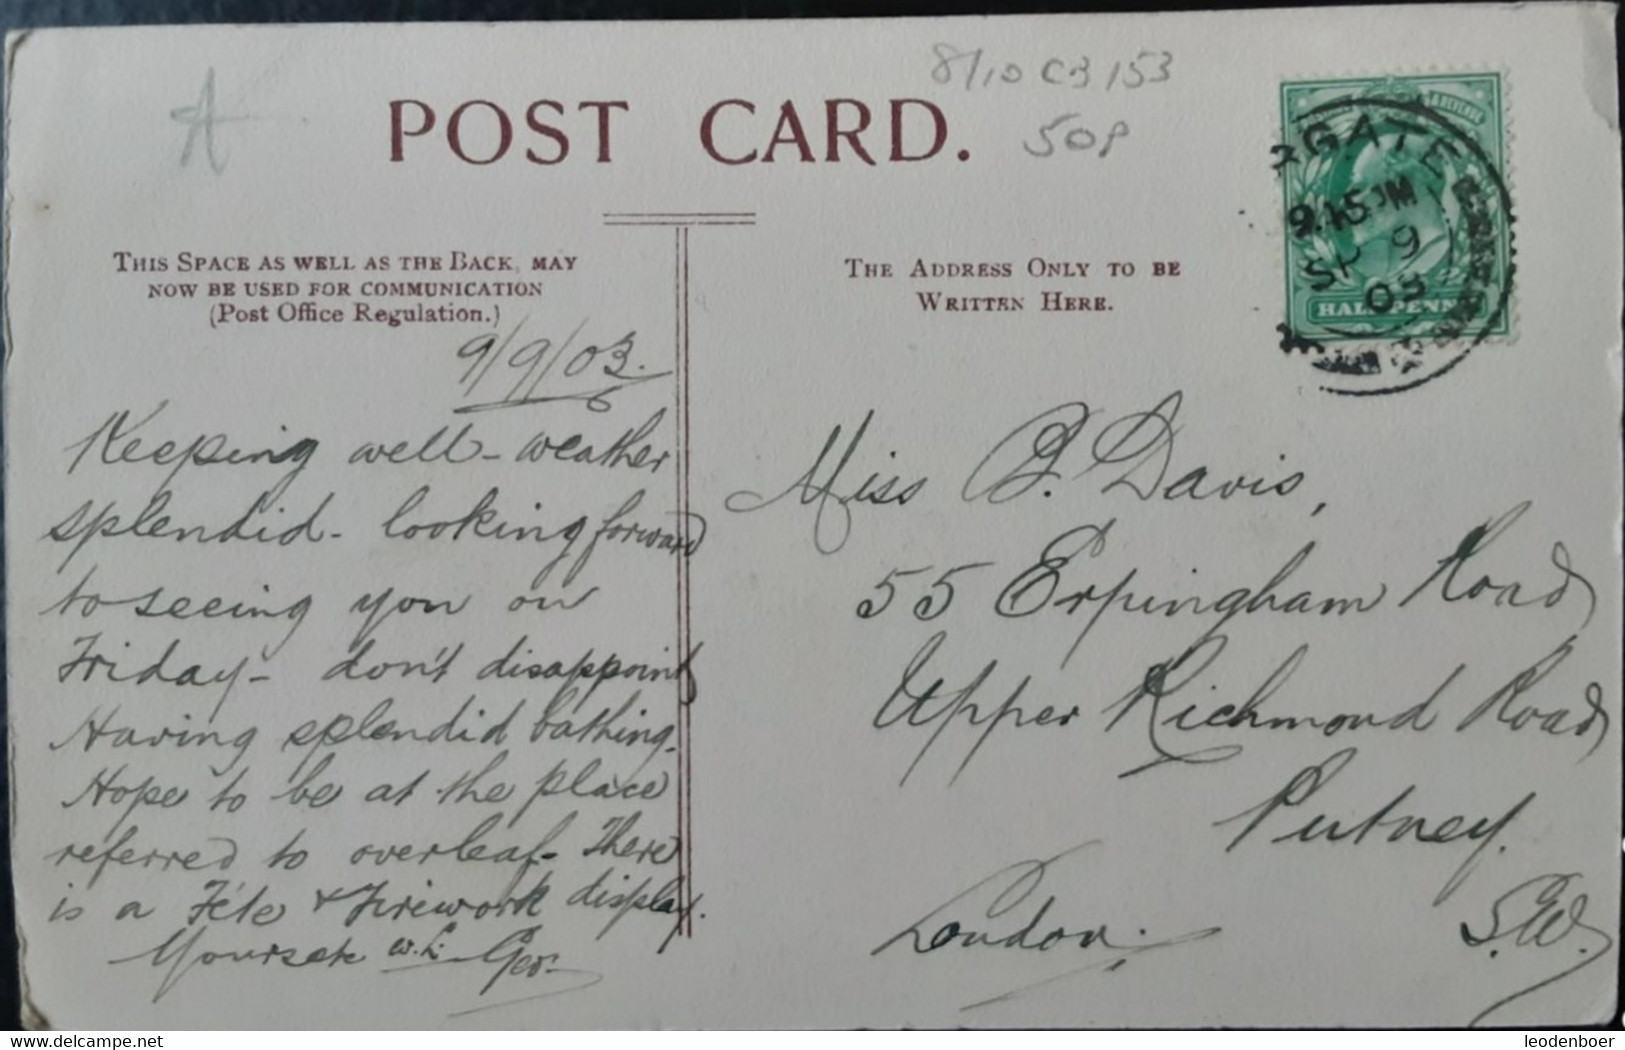 A
8/10 CB 153
50P
POST CARD.
THIS SPACE AS WELL AS THE BACK, MAY
NOW BE USED FOR COMMUNICATION
(Post Office Regulation.)
THE ADDRESS ONLY TO BE
WRITTEN HERE.
RGATE
9.15PM
SP 9
03
HALFPENNY
9/9/03.
Keeping well - weather
splendid - looking forward
to seeing you on
Friday - don't disappoint
Having splendid bathing.
Hope to be at the place
referred to overleaf - There
is a Fête & Firework display.
Yours etc w.L. Geo.
Miss B. Davis,
55 Erpingham Road
Upper Richmond Road
Putney.
London. S.W.
www.delcampe.net
leodenboer